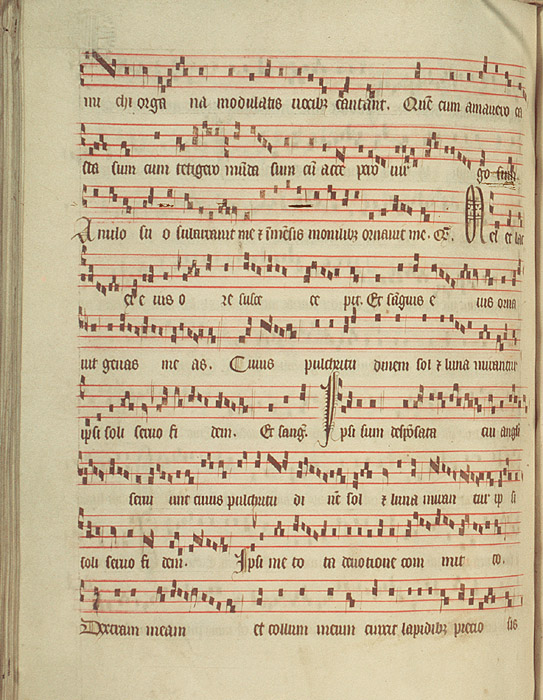 mi chi orga na modulatis vocibꝫ cantant. Quē cum amauero ca
sta sum cum tetigero mūda sum cū acce pero vir go sum.
Anulo su o subarrauit me ⁊ īmēsis monilibꝫ ornauit me. Mel et lac
ex e ius o re susce ce pit. Et sāguis e ius orna
uit genas me as. Cuius pulchritu dinem sol ⁊ luna mirantur
ipsi soli seruo fi dem. Et sang. Ipsi sum despōsata cui angli
serui unt cuius pulchritu di nē sol ⁊ luna miran tur ip si
soli seruo fi dem. Ipsi me to ta deuotione com mit to.
Dexteram meam et collum meum cinxit lapidibꝫ precio sis